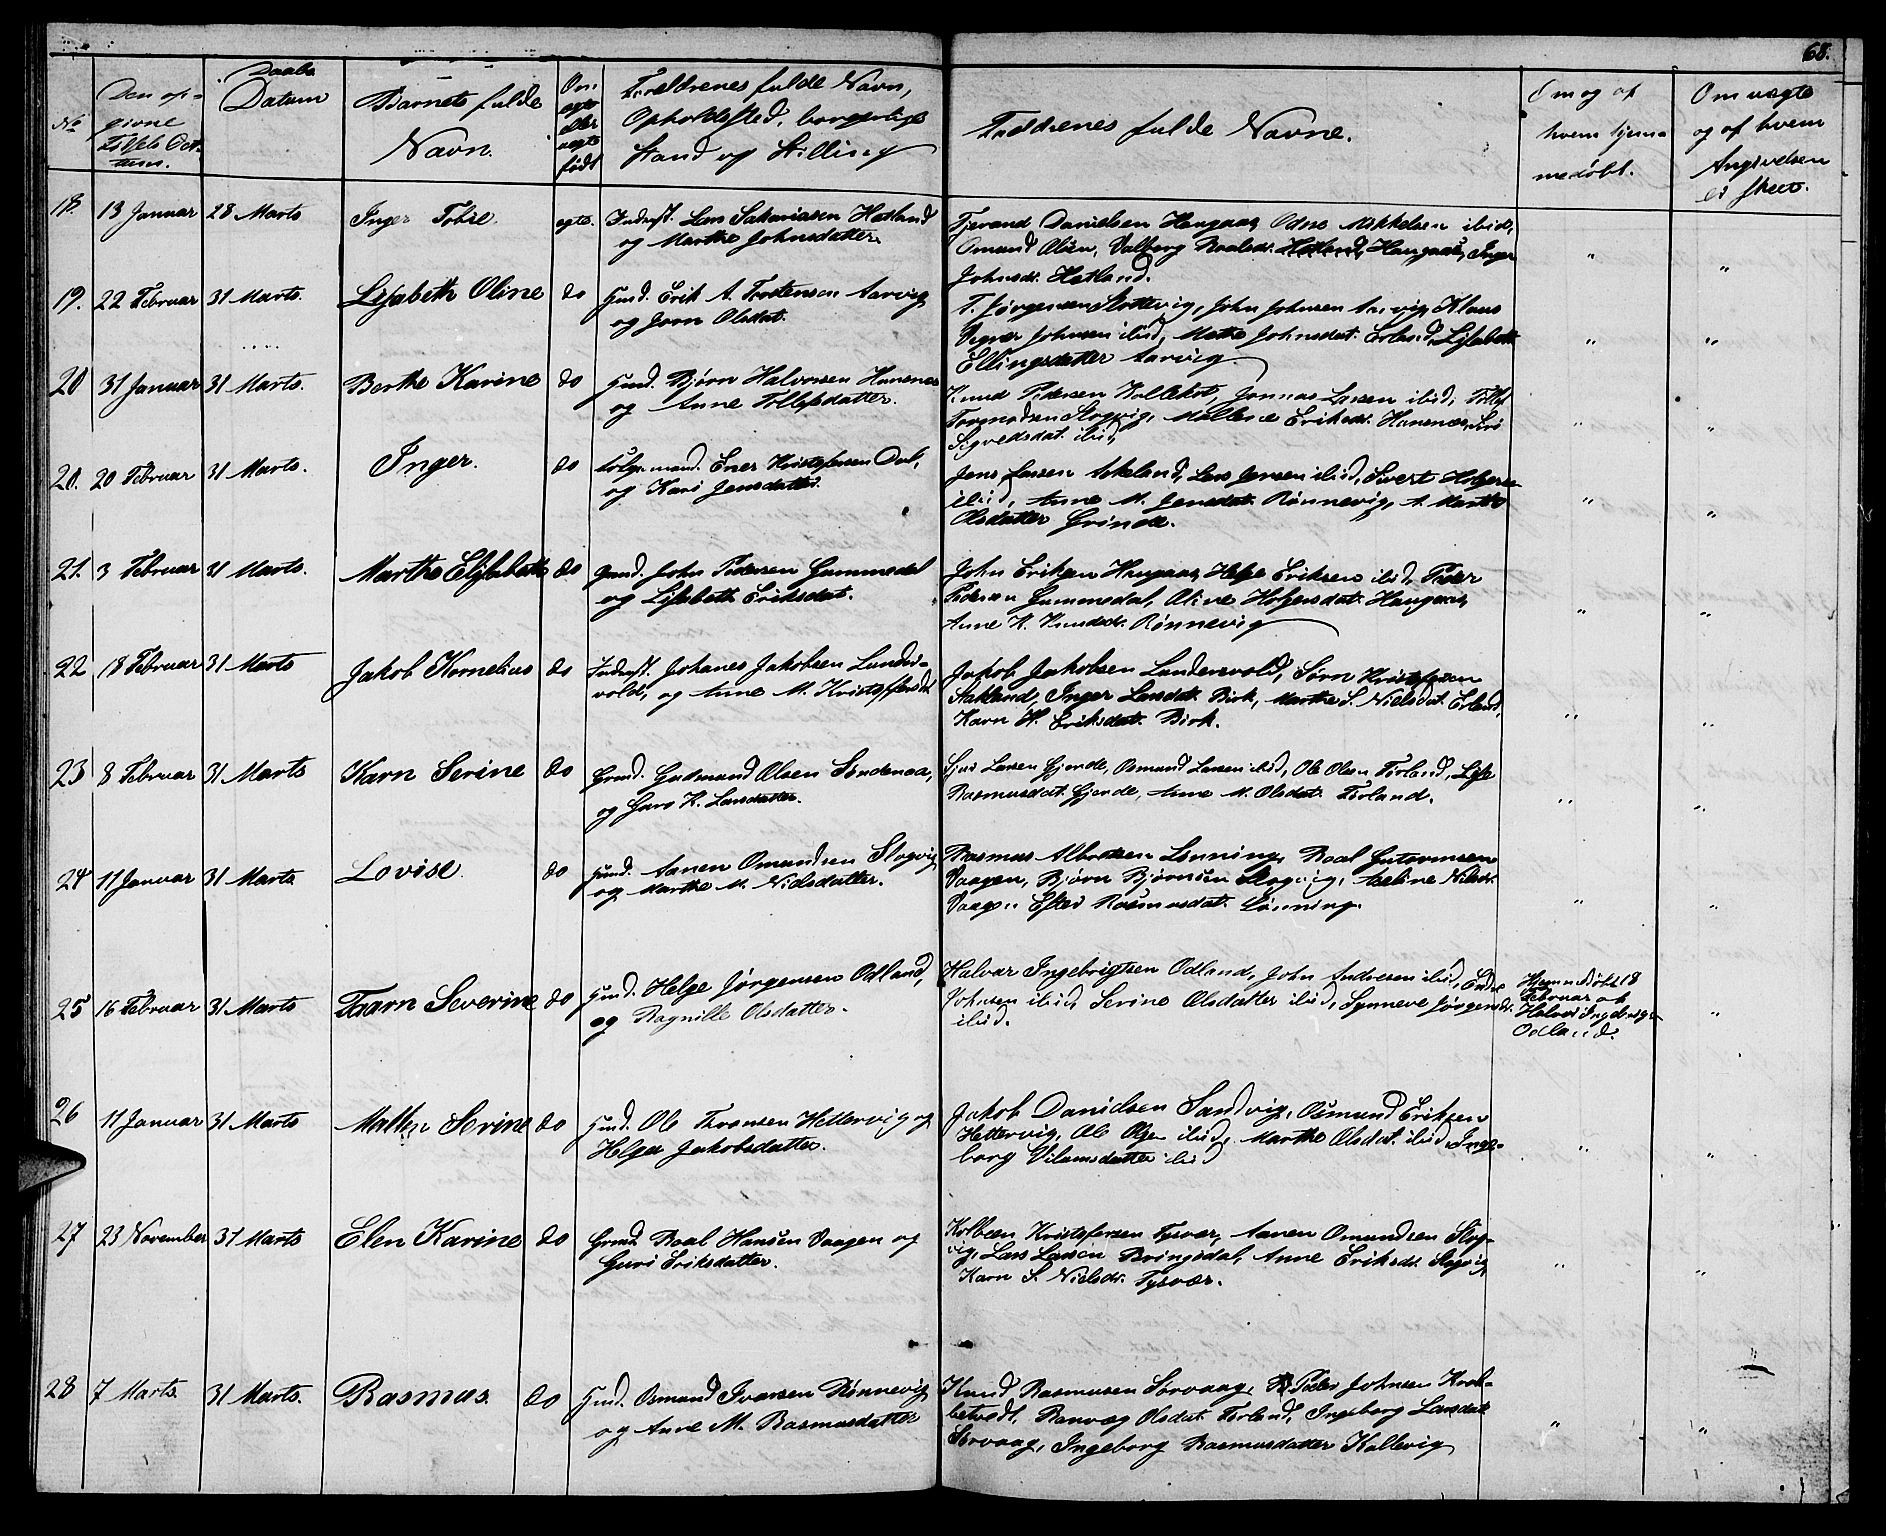 68.
No
Den op-
givne
Fødsels Dat-
tum.
Daabs
Datum
Barnets fulde
Navn.
Om
egte
eller
uegte
født
Forældrenes fulde Navn,
Opholdssted, borgerlige
Stand og Stilling
Faddrenes fulde Navne.
Om og af
hvem hjem-
medøbt.
Om uægte
og af hvem
Angivelsen
er skeet.
18. 13 Januar 28 Marts Inger Tobie. egte. Inderst. Lars Sakariassen Hatland
og Marthe Johnsdatter.
Tjerand Danielsen Haugaas, Odne Mikkelsen ibid,
Omund Olsen, Valborg Roalsdr. Hatland, Haugaas, Inger
Johnsdr. Hatland. " "
19. 22 Februar 31 Marts. Lisabeth Oline do Gmd. Erik A. Trostensen Aarvig
og Jorn Olsdat.
T. Jørgensen Slottevig, John Johnsen Aarvig, Klaus
Johnsen ibid, Mette Johnsdat. Erland, Lisabeth
Ellingsdatter Aarvig " "
20 31 Januar 31 Marts. Berthe Karine do Gmd. Bjørn Halvorsen Hanenæs
og Anne Tollefsdatter.
Knud Pedersen Kolleket, Jonnas Larsen ibid, Tollef
Tormodsen Slogvig, Mallene Eriksdr. Hanenæs, Siri
Sigvedsdat. ibid, " "
20. 20 Februar 31 Marts. Inger. do Følgemand. Ener Kristofersen Dal,
og Kari Jensdatter.
Jens Larsen Askeland, Lars Jensen ibid, Sivert Holgersen
ibid, Anne M. Jensdat. Rønnevig, A. Marthe
Olsdatter Grinde. " "
21. 3 Februar 31 Marts. Marthe Elisabeth do Gmd. John Pedersen Gummedal
og Lisabeth Eriksdat.
John Eriksen Haugaas, Helge Eriksen ibid, Peder
Pedersen Gummedal, Oline Holgersdat. Haugaas,
Anne K. Knudsdr. Rønnevig " "
22 18 Februar 31 Marts Jakob Kornelius do Inderst. Johanes Jakobsen Lunders-
vold, og Anne M. Kristoffersdt
Jakob Jakobsen Lundersvold, Sørn Kristofersen
Stakland, Inger Larsdat. Birk, Marthe S. Nielsdat. Erland,
Karn H. Eriksdat. Birk. " "
23 8 Februar 31 Marts Karn Serine do Gmd. Gudmund Olsen Søndenaa,
og Guro K. Larsdatter.
Sjur Larsen Gjerde, Osmund Larsen ibid, Ole Olsen Førland, Lise
Rasmusdat. Gjerde, Anne M. Olsdat. Førland. " "
24 11 Januar 31 Marts Lovise. do Gmd. Aanen Omundsen Slogvig
og Marthe M. Nielsdatter.
Rasmus Albretsen Lønning, Roal Gutormsen
Vaagen, Bjørn Bjørnsen Slogvig, Aseline Nilsdr.
Vaagen Rasmusdat. Lønning. " "
25 16 Februar 31 Marts Traen Severine do Gmd. Helge Jørgensen Odland,
og Ragnille Olsdatter.
Halvar Ingebrigtsen Odland, John Andresen ibid, Endre
Johnsen ibid, Serine Olsdatter ibid, Synneve Jørgensdr.
ibid.
Hjemmedøbt 18
Februar af
Halvor Ingebrigts.
Odland. "
26 11 Januar 31 Marts Mallen Serine do Gmd. Ole Thronsen Hettervig og
Helga Jakobsdatter.
Jakob Danielsen Sandvig, Osmund Eriksen
Hettervig, Ole Olsen ibid, Marthe Olsdat. ibid, Inge-
borg Vilamsdatter ibid " "
27 23 November 31 Marts Elen Karine do Gmd. Roal Hansen Vaagen og
Guri Eriksdatter.
Kolbeen Kristofersen Tysvær, Aanen Omundsen Slog-
vig, Lars Larsen Bringedal, Anne Eriksdr. Slogvig,
Karn S. Nielsdr. Tysvær. " "
28 7 Marts. 31 Marts. Rasmus. do Gmd. Osmund Ivarsen Rønnevig
og Anne M. Rasmusdatter
Knud Rasmusen Sørvaag, Peder Johnsen Krok-
betvedt, Ranvæg Olsdat. Førland, Ingeborg Larsdat.
Sørvaag, Ingeborg Rasmusdatter Kallevig " "